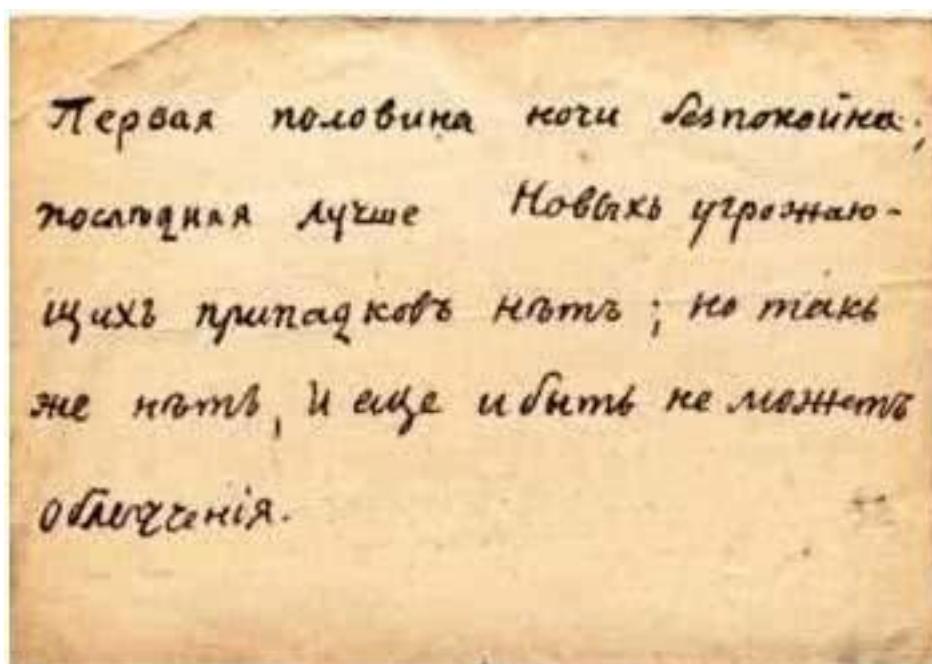 Первая половина ночи безпокойна;
послѣдняя лучше Новыхъ угрожаю-
щихъ припадковъ нѣтъ; но такъ
же нѣтъ, и еще и быть не можетъ
облегченія.